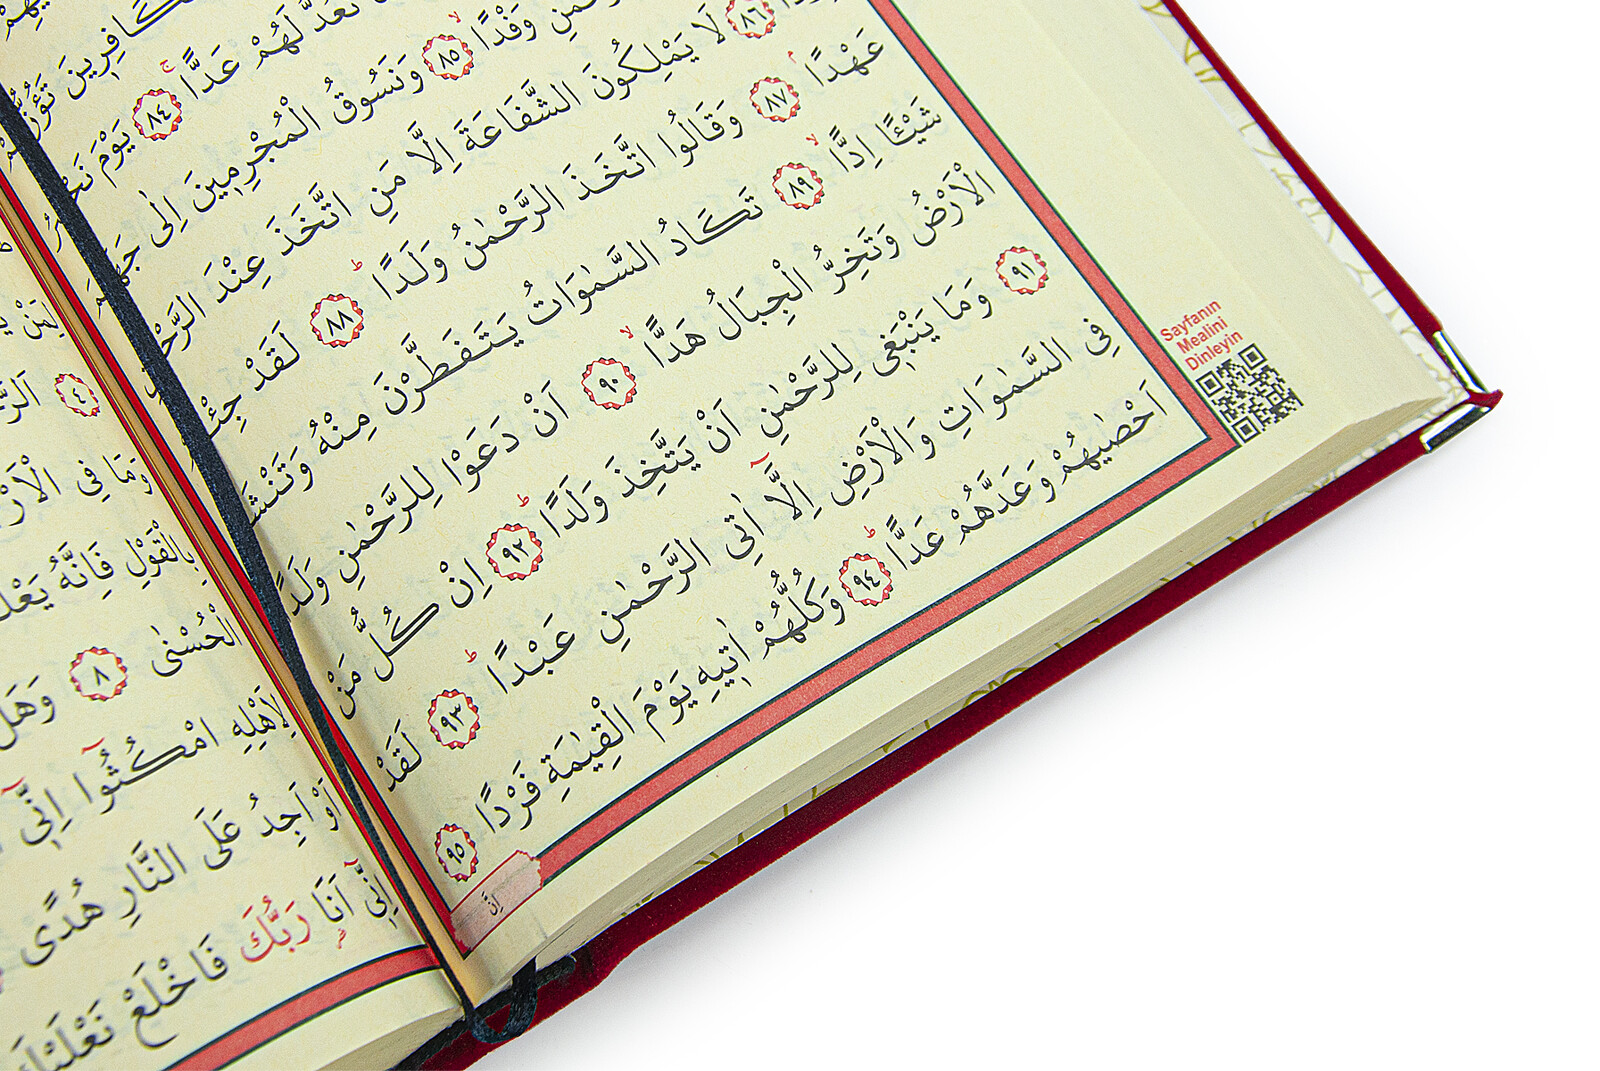 تَؤُزُّهُمْ
نَعُدُّ لَهُمْ عَدًّاۚ ﴿٨٤﴾ يَوْمَ نَحْشُرُ
وَفْدًاۙ ﴿٨٥﴾ وَنَسُوقُ الْمُجْرِمِينَ اِلٰى جَهَنَّمَ
﴿٨٦﴾ لَا يَمْلِكُونَ الشَّفَاعَةَ اِلَّا مَنِ اتَّخَذَ عِنْدَ الرَّحْمٰنِ
عَهْدًاۘ ﴿٨٧﴾ وَقَالُوا اتَّخَذَ الرَّحْمٰنُ وَلَدًاۜ ﴿٨٨﴾ لَقَدْ
شَيْـًٔا اِدًّاۙ ﴿٨٩﴾ تَكَادُ السَّمٰوَاتُ يَتَفَطَّرْنَ مِنْهُ وَتَنْشَقُّ
الْاَرْضُ وَتَخِرُّ الْجِبَالُ هَدًّاۙ ﴿٩٠﴾ اَنْ دَعَوْا لِلرَّحْمٰنِ وَلَدًا
﴿٩١﴾ وَمَا يَنْبَغِي لِلرَّحْمٰنِ اَنْ يَتَّخِذَ وَلَدًاۜ ﴿٩٢﴾ اِنْ كُلُّ مَنْ
فِي السَّمٰوَاتِ وَالْاَرْضِ اِلَّٓا اٰتِي الرَّحْمٰنِ عَبْدًاۜ ﴿٩٣﴾ لَقَدْ
اَحْصٰيهُمْ وَعَدَّهُمْ عَدًّاۜ ﴿٩٤﴾ وَكُلُّهُمْ اٰتِيهِ يَوْمَ الْقِيٰمَةِ فَرْدًا ﴿٩٥﴾
اِنَّ
Sayfanın
Mealini
Dinleyin
﴿٤﴾
وَمَا فِي
بِالْقَوْلِ فَاِنَّهُ
الْحُسْنٰى ﴿٨﴾ وَهَلْ
لِاَهْلِهِ امْكُثُٓوا اِنِّٓي
اَوْ اَجِدُ عَلَى النَّارِ هُدًى
اِنِّٓي اَنَا رَبُّكَ فَاخْلَعْ نَعْلَيْكَ